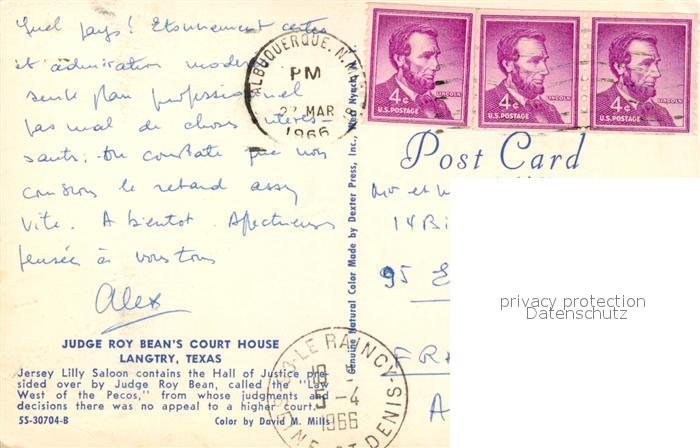 Quel pays! Etonnement certes
et admiration
sur le plan professionnel
pas mal de choses intéres-
sants. On constate que nous
le retard assez
vite. A bientot. Affectueuses
pensées à vous tous
Alex
JUDGE ROY BEAN'S COURT HOUSE
LANGTRY, TEXAS
Jersey Lilly Saloon contains the Hall of Justice pre-
sided over by Judge Roy Bean, called the "Law
West of the Pecos," from whose judgments and
decisions there was no appeal to a higher court.
55-30704-B Color by David M. Mills
ALBUQUERQUE, N. M.
PM
27 MAR
1966
Genuine Natural Color Made by Dexter Press, Inc., West Nyack, N. Y.
4¢ LINCOLN
U.S. POSTAGE
4¢ LINCOLN
U.S. POSTAGE
4¢ LINCOLN
U.S. POSTAGE
Post Card
et
14
95
FRA
A
privacy protection
Datenschutz
LE RAINCY
-4
1966
SEINE-ET DENIS